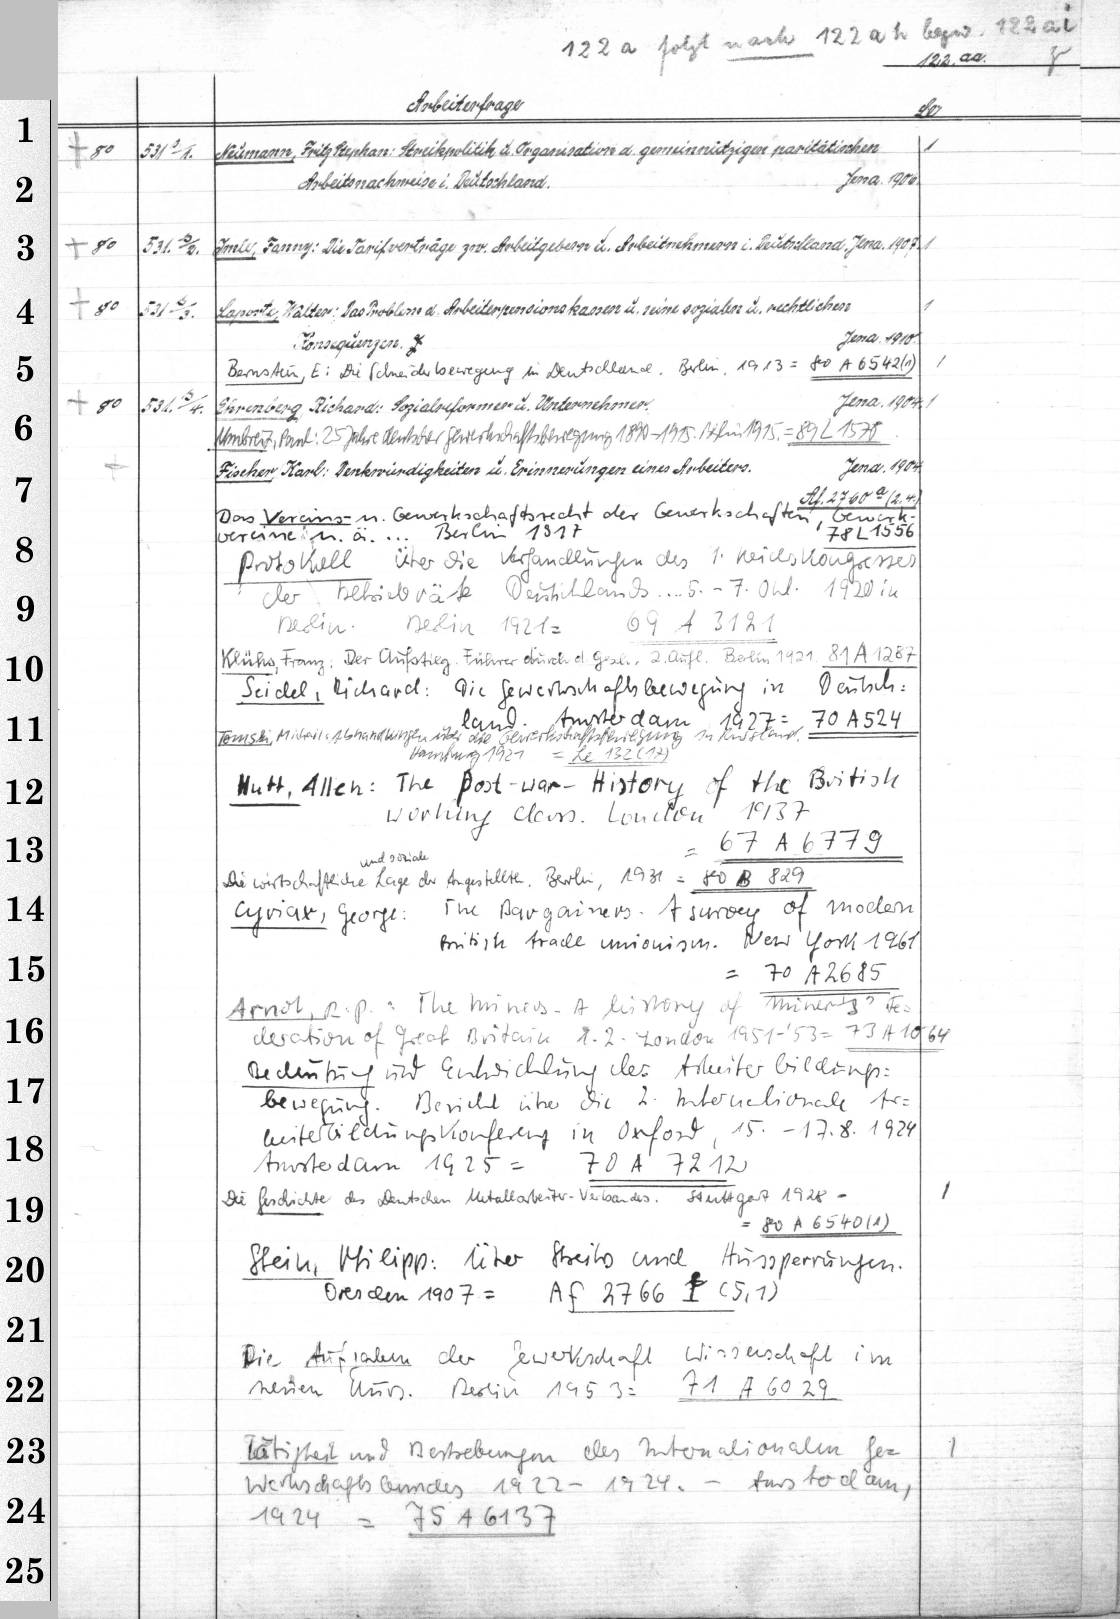 122 a folgt nach 122 a h bezw. 122 ai
122. aa.
Arbeiterfrage
1
+ 80 531 5/1. Neumann, Fritz Stephan: Streikpolitik u. Organisation d. gemeinnützigen paritätischen 1
2 Arbeitsnachweise i. Deutschland. Jena. 1906.
3 + 80 531. 5/2. Imle, Fanny: Die Tarifverträge zw. Arbeitgebern u. Arbeitnehmern i. Deutschland. Jena. 1907. 1
4 + 80 531 5/3. Laporte, Walter: Das Problem d. Arbeiterpensionskassen u. seine sozialen u. rechtlichen 1
Konsequenzen. Jena. 1910.
5 Bernstein, E: Die Schneiderbewegung in Deutschland. Berlin, 1913 = 80 A 6542(1) 1
+ 80 531. 5/4. Ehrenberg, Richard: Sozialreformer u. Unternehmer. Jena. 1904. 1
6 Umbreit, Paul: 25 Jahre deutscher Gewerkschaftsbewegung 1890-1915. Berlin 1915. = 89 L 1570
+ Fischer, Karl: Denkwürdigkeiten u. Erinnerungen eines Arbeiters. Jena. 1904
7 Af. 2760 a (2.4.)
Das Vereins- u. Gewerkschaftsrecht der Gewerkschaften, Gewerk-
vereine u. ä. ... Berlin 1917 78 L 1556
8 Protokoll über die Verhandlungen des 1. Reichskongresses
der Betriebsräte Deutschlands .... 5. - 7. Okt. 1920 in
9 Berlin. Berlin 1921 = 69 A 3121
10 Klühs, Franz: Der Aufstieg. Führer durch d. Gesch. 2. Aufl. Berlin 1921. 81 A 1287
Seidel, Richard: Die Gewerkschaftsbewegung in Deutsch=
11 land. Amsterdam 1927 = 70 A 524
Tomski, Michail: Abhandlungen über die Gewerkschaftsbewegung in Russland.
Hamburg 1921 = Le 132 (17)
12 Hutt, Allen: The post-war-History of the British
working class. London 1937
13 = 67 A 6779
und soziale
Die wirtschaftliche Lage der Angestellten. Berlin, 1931 = 80 B 829
14 Cyriax, George: The Bargainers. A survey of modern
british trade unionism. New York 1961
15 = 70 A 2685
Arnot, R. P.: The Miners. A history of Miner's Fe-
16 deration of Great Britain 1. 2. London 1951-'53 = 73 A 1064
Bedeutung und Entwicklung der Arbeiterbildungs=
17 bewegung. Bericht über die 2. Internationale Ar=
beiterbildungskonferenz in Oxford, 15. - 17. 8. 1924
18 Amsterdam 1925 = 70 A 7212
Die Geschichte des Deutschen Metallarbeiter-Verbandes. Stuttgart 1928 - 1
19 = 80 A 6540(1)
20 Stein, Philipp: Über Streiks und Aussperrungen.
Dresden 1907 = Af 2766 (5,1)
21
Die Aufgaben der Gewerkschaft Wissenschaft im
22 neuen Kurs. Berlin 1953 = 71 A 6029
23 Tätigkeit und Bestrebungen des Internationalen Ge= 1
werkschaftsbundes 1922 - 1924. - Amsterdam,
24 1924 = 75 A 6137
25